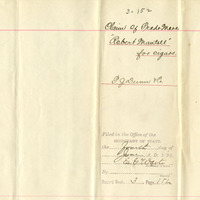 2-182
Claim of Trade Mark
"Robert Mantell"
for cigars.
P. J. Dunn
Filed in the Office of the
SECRETARY OF STATE
fourth day of
A. D. 18
Record Book 3 Page 182